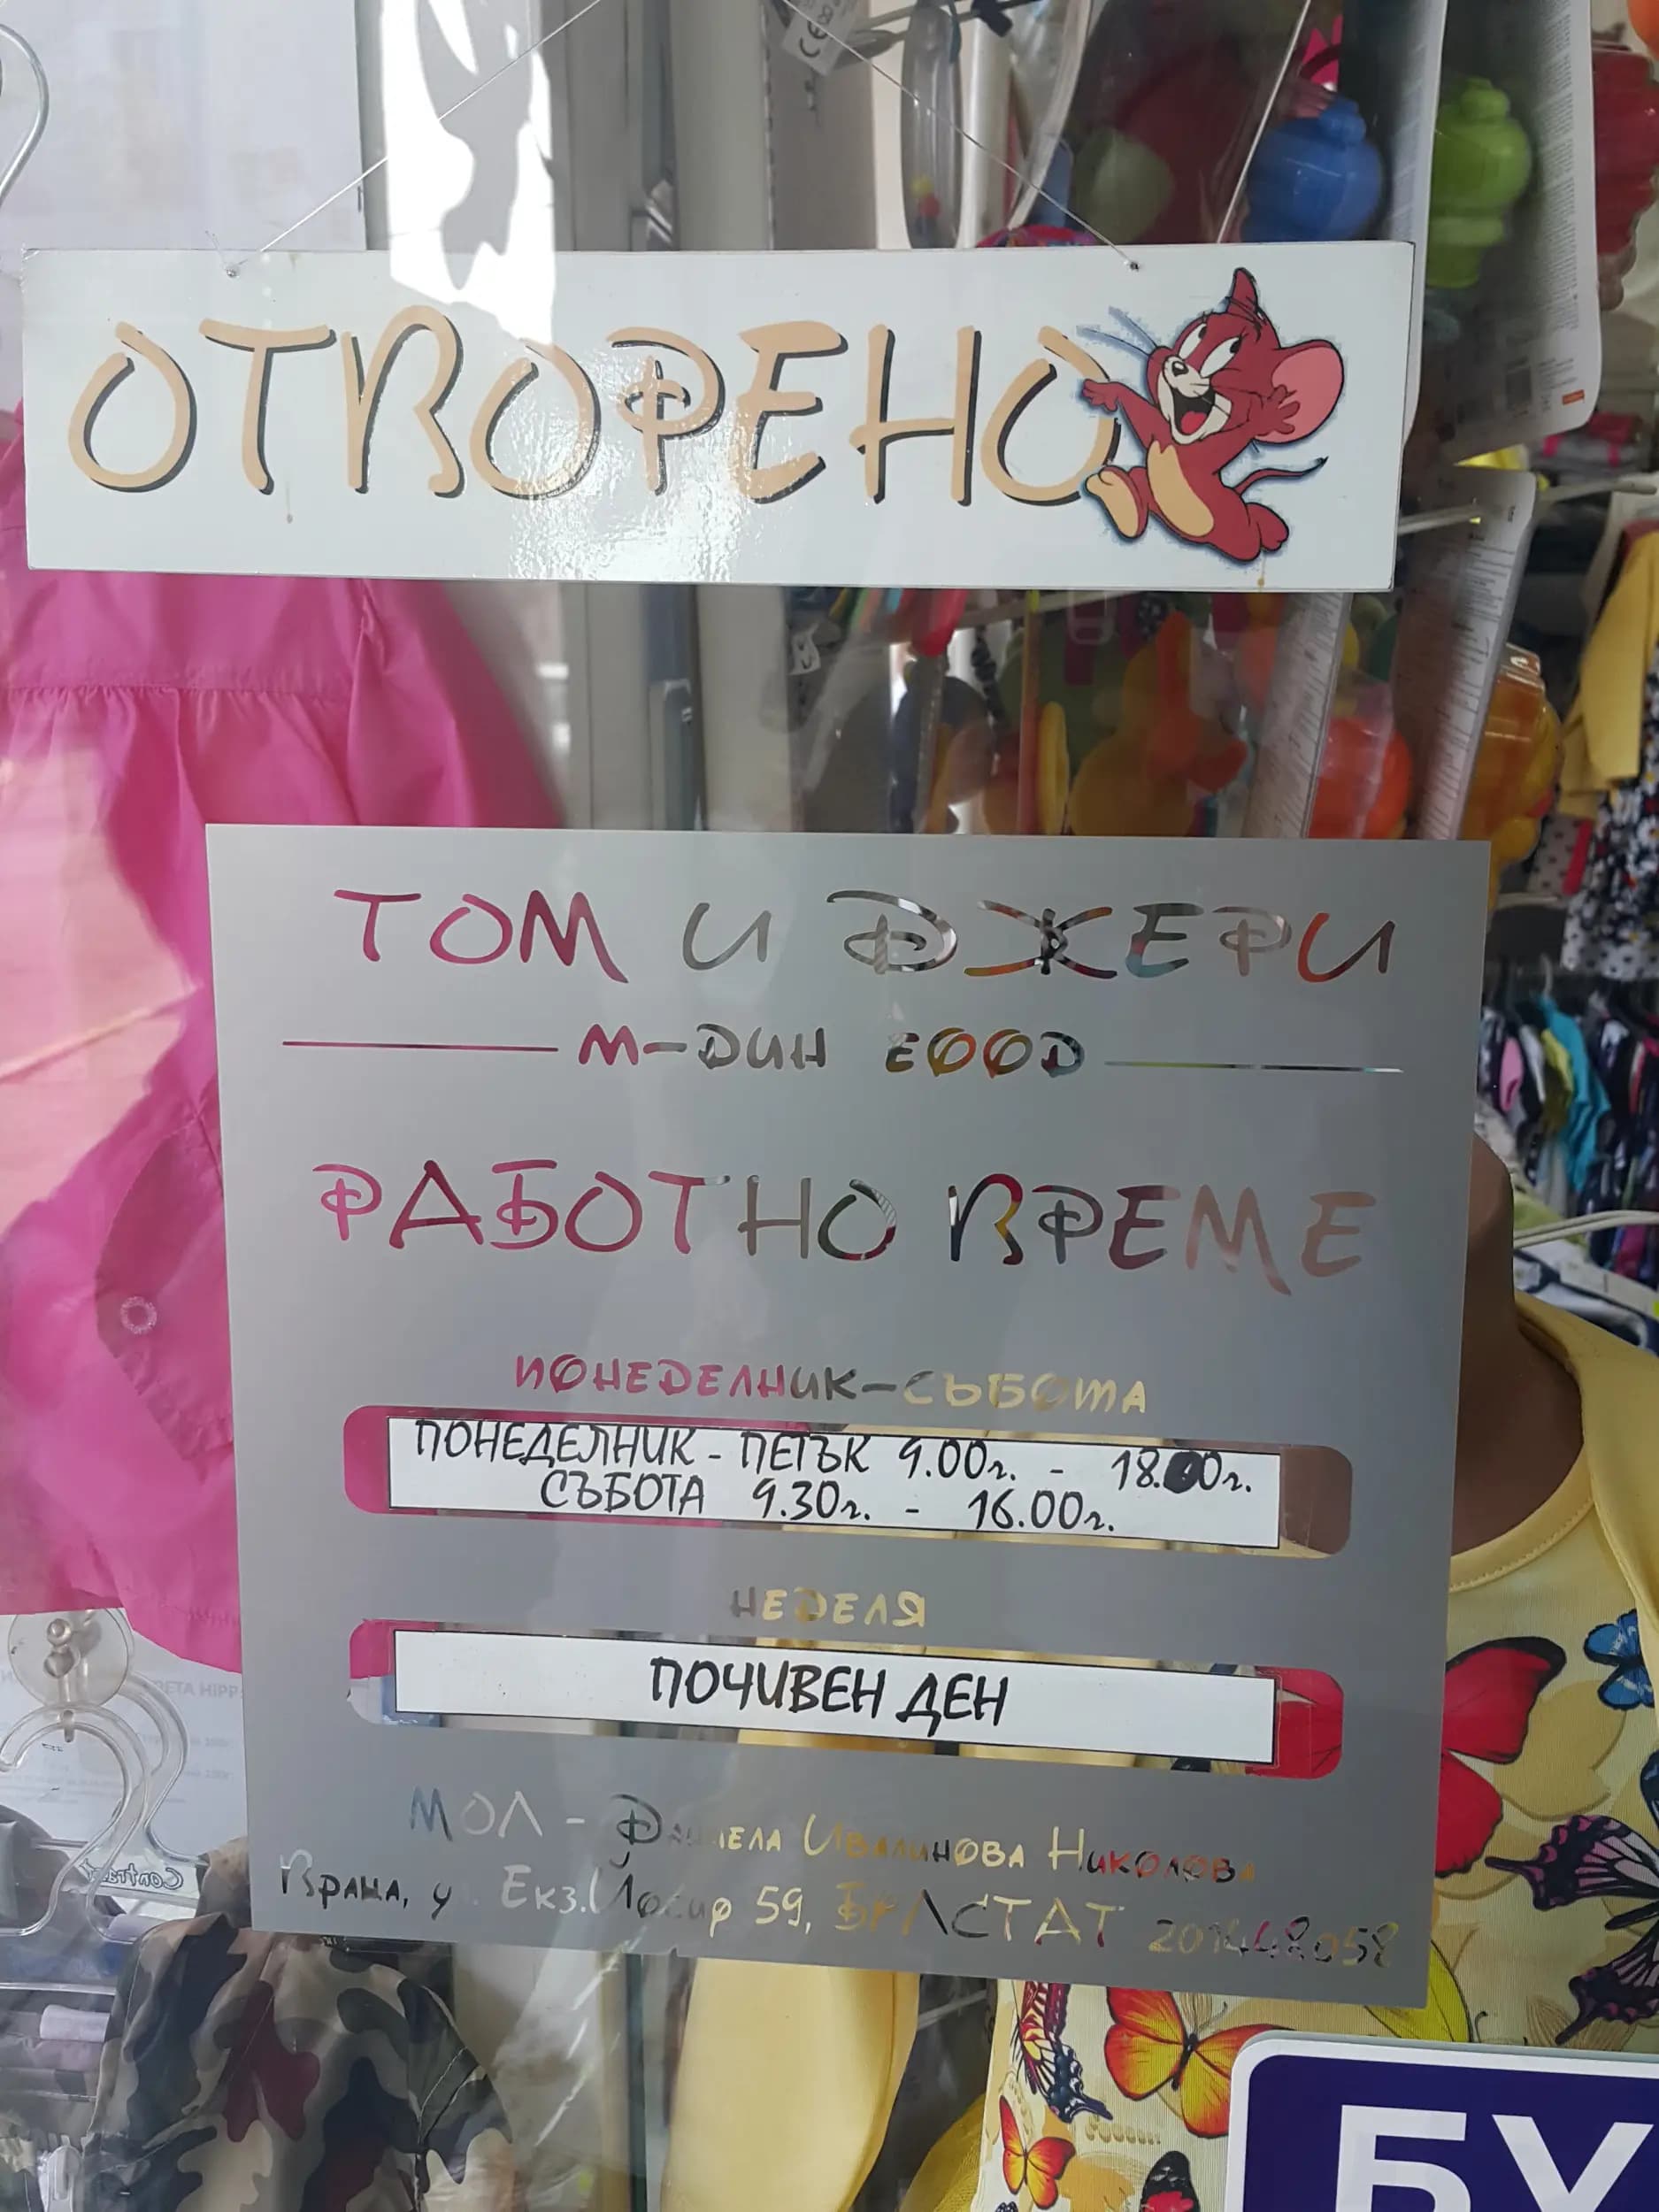 ОТВОРЕНО
ТОМ И ДЖЕРИ
М-ДИН ЕООД
РАБОТНО ВРЕМЕ
ПОНЕДЕЛНИК-СЪБОТА
ПОНЕДЕЛНИК - ПЕТЪК 9.00г. - 18.00г.
СЪБОТА 9.30г. - 16.00г.
НЕДЕЛЯ
ПОЧИВЕН ДЕН
МОЛ - Даниела Ивалинова Николова
Враца, у. Екз.Йосиф 59, БУЛСТАТ 201448058
БУ